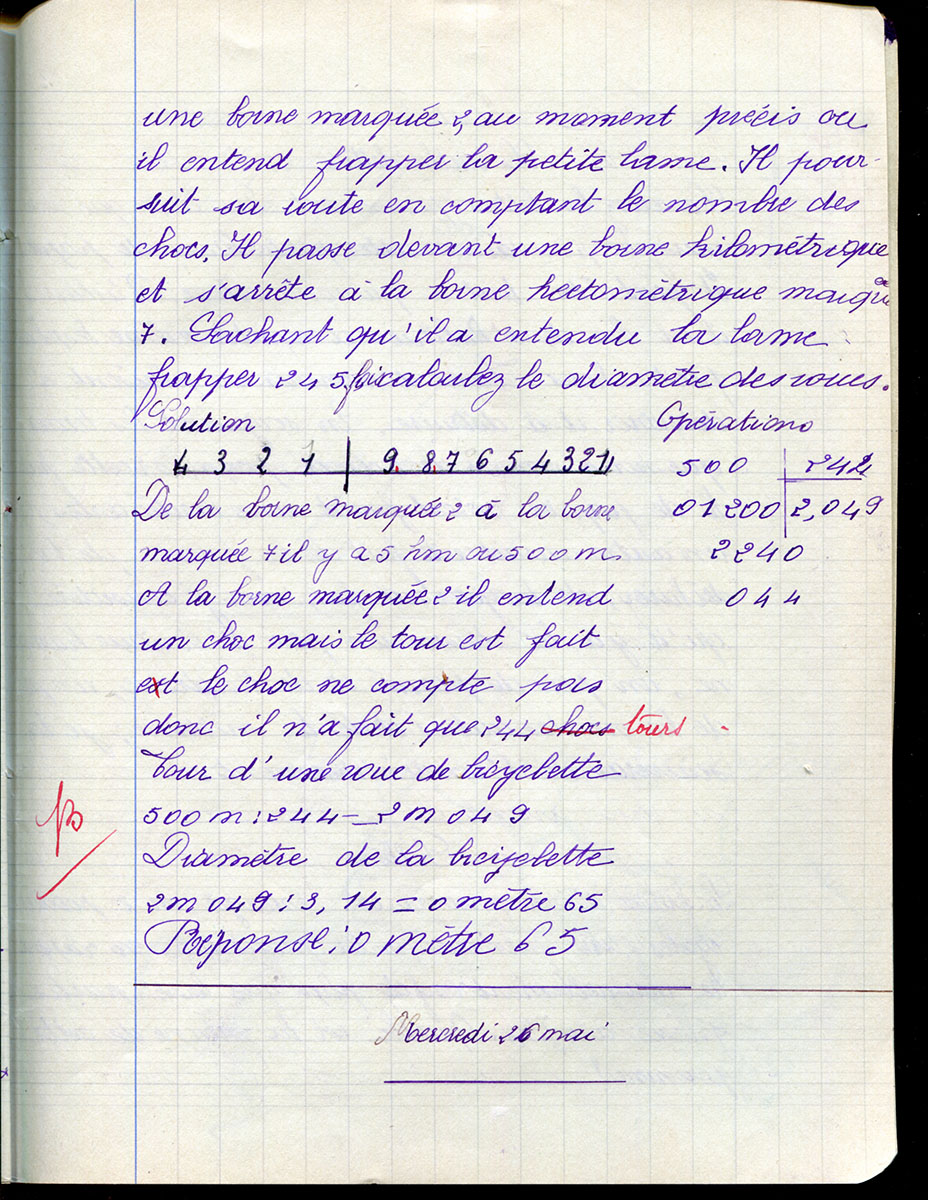 une borne marquée 2, au moment précis ou
il entend frapper la petite lame. Il pour-
suit sa route en comptant le nombre des
chocs. Il passe devant une borne kilométrique
et s'arrête à la borne hectométrique marqu
7. Sachant qu'il a entendu la lame
frapper 245 le diamètre des roues.
Solution Opérations
4 3 2 1 | 9 8 7 6 5 4 3 2 1 500 | 244
De la borne marquée 2 à la borne 01200 2,049
marquée 7 il y a 5 hm ou 500 m. 2240
A la borne marquée 2 il entend 044
un choc mais le tour est fait
et le choc ne compte pas
donc il n'a fait que 244 chocs tours
Tour d'une roue de bicyclette
500 m : 244 = 2 m 049
Diamètre de la bicyclette
2 m 049 : 3,14 = 0 mètre 65
Réponse : 0 mètre 65
Mercredi 26 mai